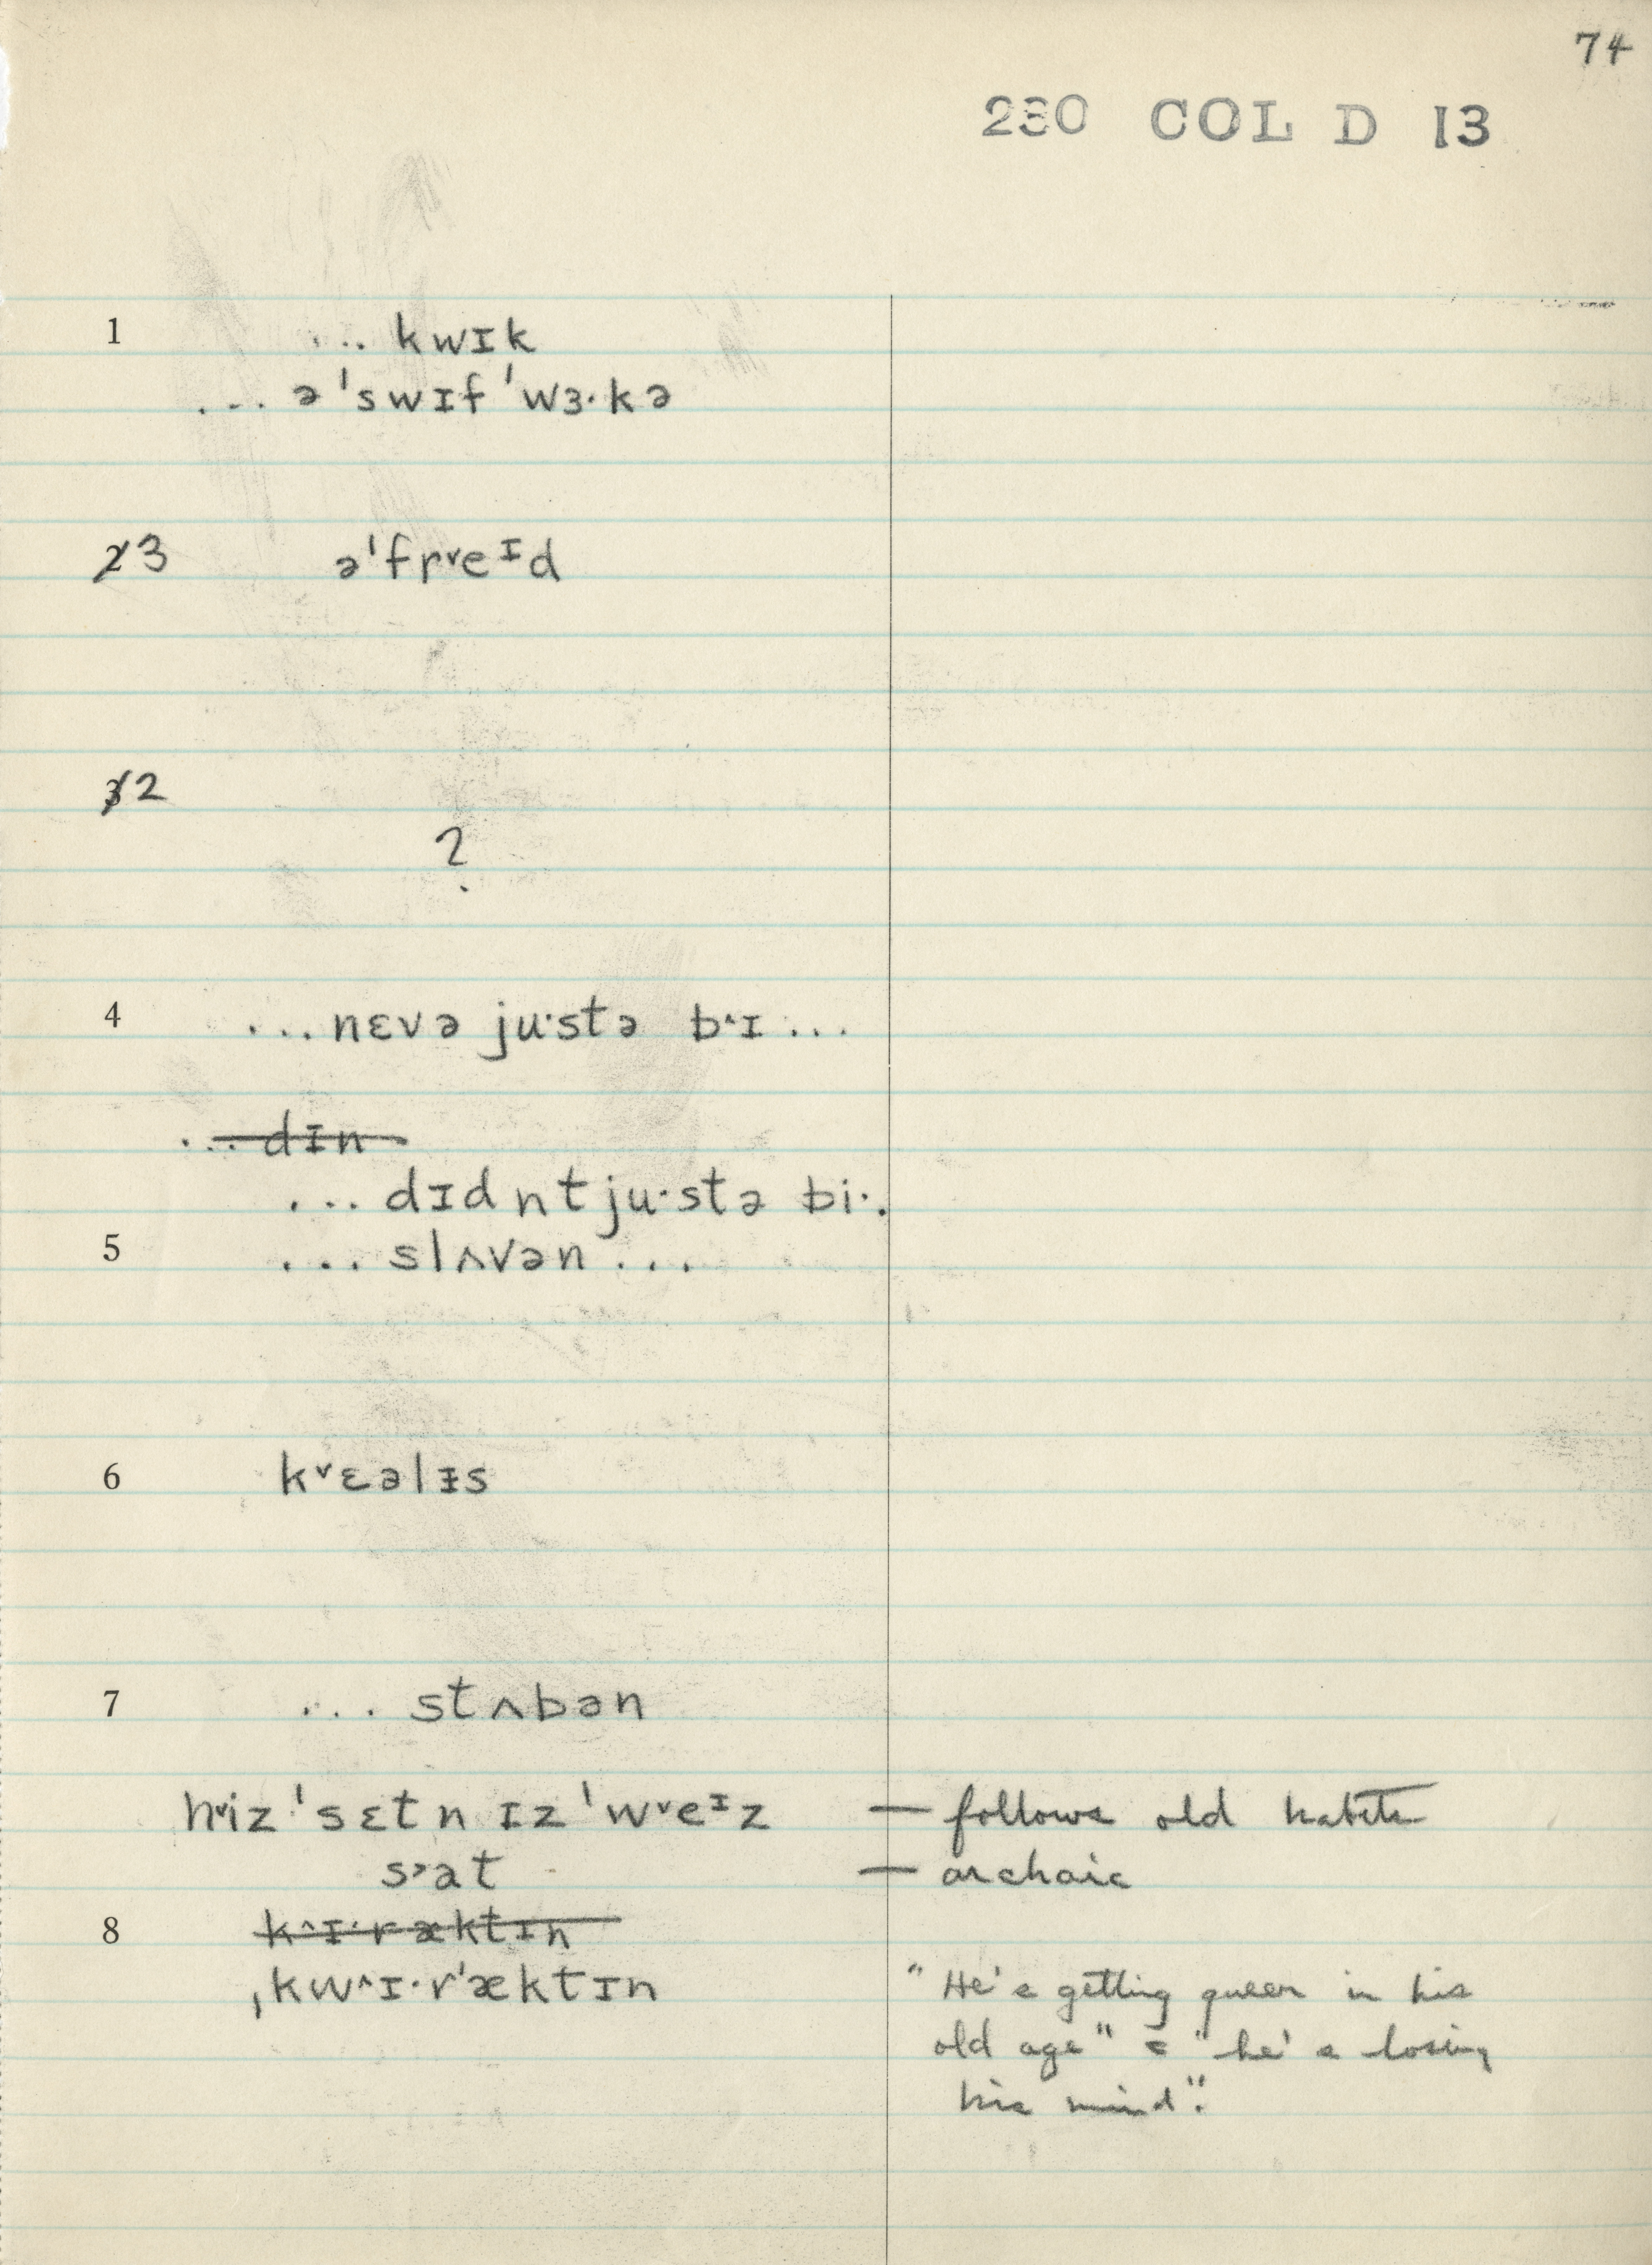 74
230 COL D 13
1 ... kwɪk
... ə'swɪf 'wɜ·kə
2 3 ə'frᵛeᶦd
3 2
?
4 ... nɛvə ju·stə b^ɪ ...
... dɪn
... dɪdntju·stə bi·.
5 ... slʌvən ...
6 kᵛɛəlɪs
7 ... stʌbən
hᵛiz 'sɛtn ɪz 'wᵛeᶦz — follows old habits
s›at — archaic
8 k^ɪ·ræktɪn
ˌkw^ɪ·r'æktɪn
"He's getting queer in his
old age" = "he's losing
his mind".